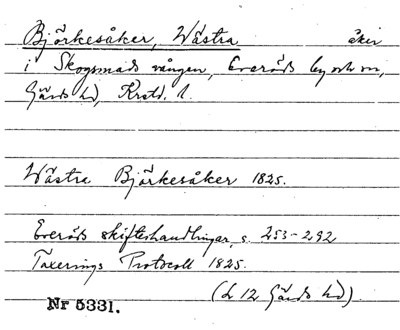 Björkesåker, Wästra åker
i Skogsmads vången, Everöds by och sn,
Gärds hd, Krstd. l.
Wästra Björkesåker 1825.
Everöds skifteshandlingar, s. 253-292
Taxerings Protocoll 1825.
(L 12 Gärds hd).
Nr 5331.